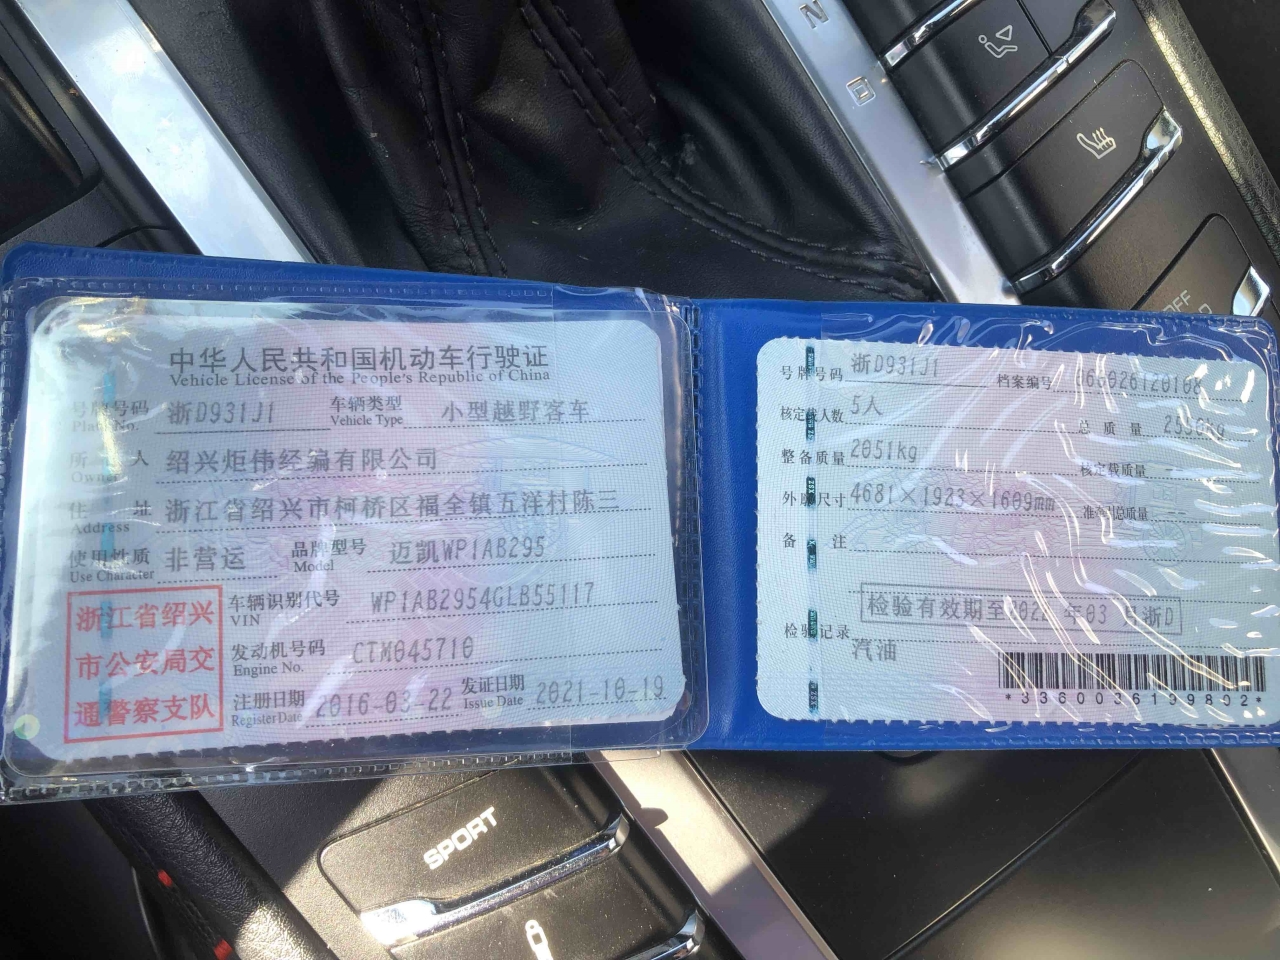 N
D
OFF
中华人民共和国机动车行驶证
Vehicle License of the People's Republic of China
号牌号码 浙D931J1 车辆类型 小型越野客车
Plate No. Vehicle Type
所 人 绍兴炬伟经编有限公司
Owner
住 址 浙江省绍兴市柯桥区福全镇五洋村陈三
Address
使用性质 非营运 品牌型号 迈凯WP1AB295
Use Character Model
浙江省绍兴
市公安局交
通警察支队
车辆识别代号 WP1AB2954GLB55117
VIN
发动机号码 CTM045710
Engine No.
注册日期 2016-03-22 发证日期 2021-10-19
Register Date Issue Date
号牌号码 浙D931J1 档案编号
核定载人数 5人 总 质 量
整备质量 2051kg 核定载质量
外廓尺寸 4681×1923×1609mm 准牵引总质量
备 注
检验有效期至2022年03月浙D
检验记录
汽油
*3360036199802*
SPORT